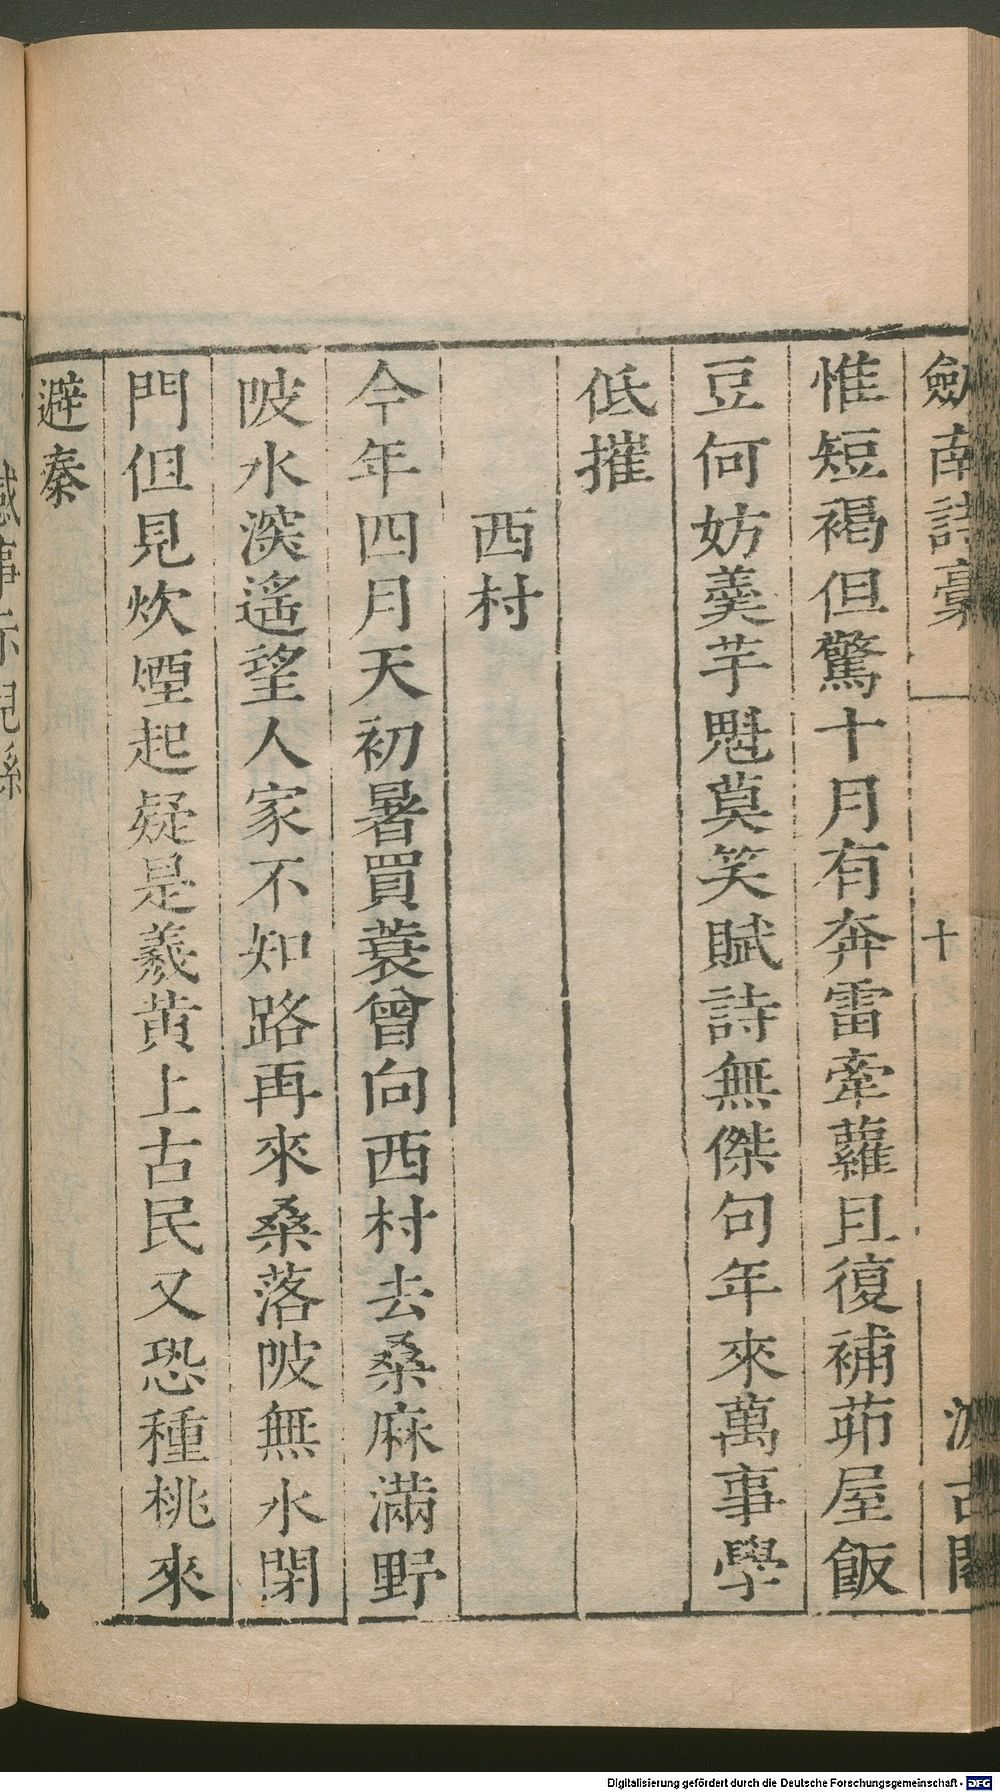 劍南詩稾 十 汲古閣
惟短褐但驚十月有奔雷牽蘿且復補茆屋飯
豆何妨羹芋魁莫笑賦詩無傑句年來萬事學
低摧
西村
今年四月天初暑買蓑曾向西村去桑麻滿野
陂水深遙望人家不知路再來桑落陂無水閉
門但見炊煙起疑是羲黄上古民又恐種桃來
避秦
感事示兒孫
Digitalisierung gefördert durch die Deutsche Forschungsgemeinschaft - DFG